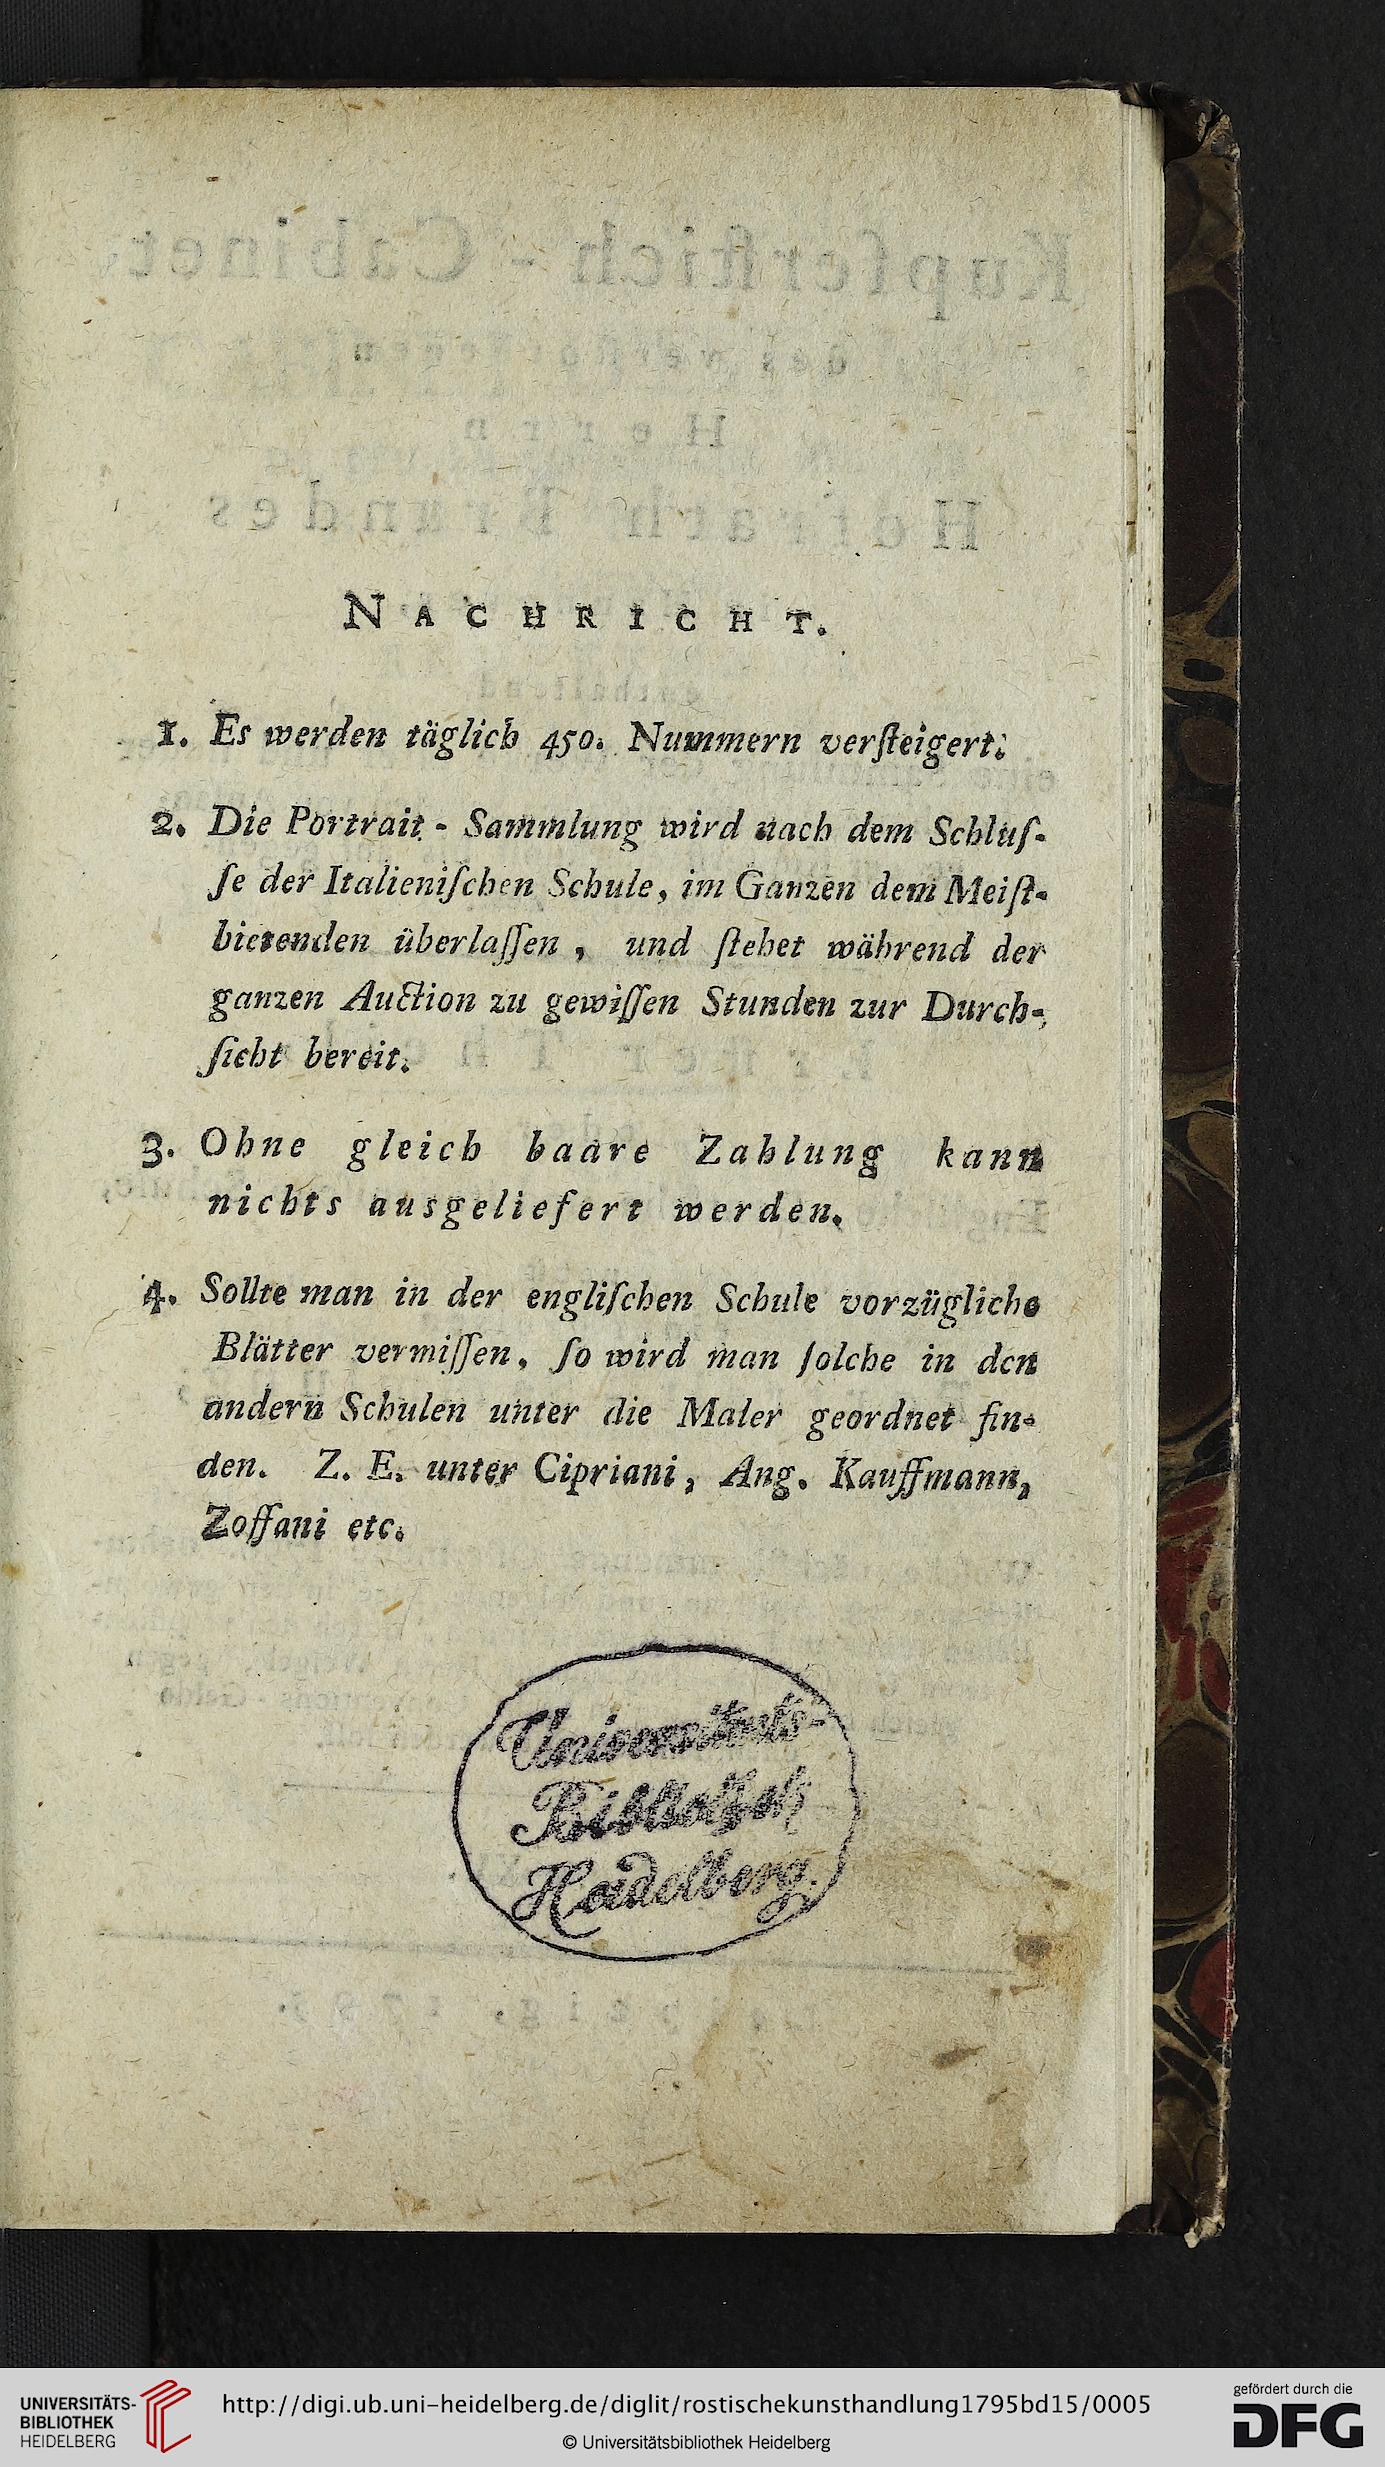 NACHRICHT.
1. Es werden täglich 450. Nummern verſteigert.
2. Die Portrait - Sammlung wird nach dem Schluſ-
ſe der Italieniſchen Schule, im Ganzen dem Meiſt-
bietenden überlaſſen, und ſtehet während der
ganzen Auction zu gewiſſen Stunden zur Durch-
ſicht bereit.
3. Ohne gleich baare Zahlung kann
nichts ausgeliefert werden.
4. Sollte man in der engliſchen Schule vorzügliche
Blätter vermiſſen, ſo wird man ſolche in den
andern Schulen unter die Maler geordnet fin-
den. Z. E. unter Cipriani, Ang. Kauffmann,
Zoffani etc.
Universitäts-
Bibliothek
Heidelberg.
UNIVERSITÄTS-
BIBLIOTHEK
HEIDELBERG
http://digi.ub.uni-heidelberg.de/diglit/rostischekunsthandlung1795bd15/0005
© Universitätsbibliothek Heidelberg
gefördert durch die
DFG